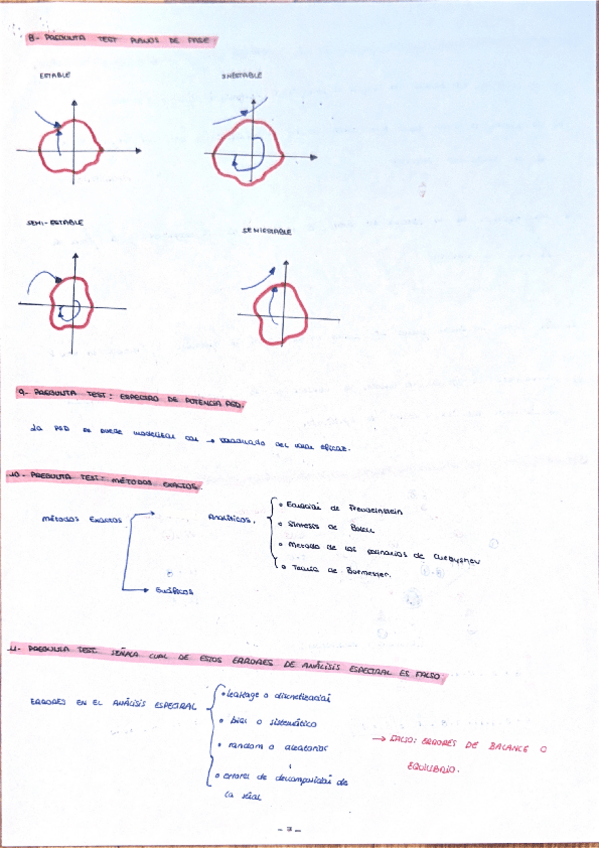 8- PREGUNTA TEST PLANOS DE FASE
ESTABLE
INESTABLE
SEMI-ESTABLE
SEMIESTABLE
9- PREGUNTA TEST: ESPECTRO DE POTENCIA PSD.
La PSD se puede modelizar con → cuadrado del valor eficaz.
10- PREGUNTA TEST: MÉTODOS EXACTOS.
Métodos Exactos
Analíticos.
• Ecuación de Freudenstein
• Síntesis de Bloch
• Método de los polinomios de Chebyshev
• Teoría de Burmester.
Gráficos
11- PREGUNTA TEST. SEÑALA CUAL DE ESTOS ERRORES DE ANÁLISIS ESPECTRAL ES FALSO
ERRORES EN EL ANÁLISIS ESPECTRAL
• leakage o discretización
• bias o sistemático
• random o aleatorios
• errores de descomposición de
la señal
→ FALSO: ERRORES DE BALANCE O
EQUILIBRIO.